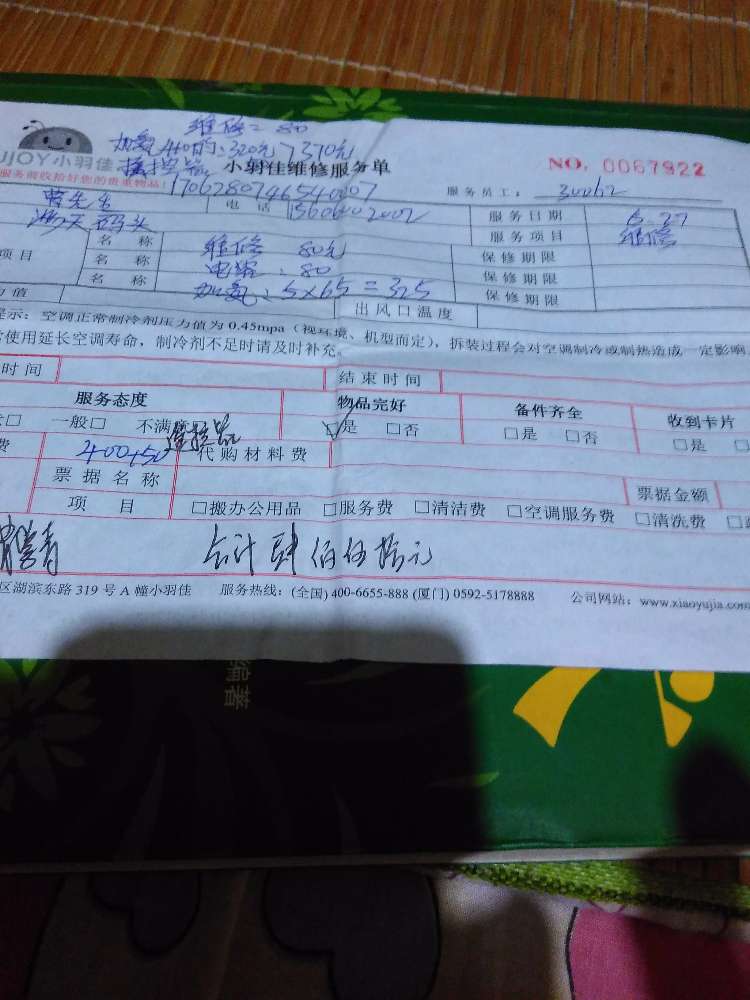 维修: 80
加氨410的: 320元 } 370元
UJOY小羽佳
小羽佳维修服务单
NO. 0067922
服务前收拾好您的贵重物品!
服务员工: 30062
电话
服务日期 6.27
码头
服务项目 维修
项目 名称 维修 80元 保修期限
名称 电容: 80 保修期限
名称 5×65=325 保修期限
力值 出风口温度
提示: 空调正常制冷剂压力值为 0.45mpa(视环境、机型而定),拆装过程会对空调制冷或制热造成一定影响
使用延长空调寿命,制冷剂不足时请及时补充。
时间 结束时间
服务态度 物品完好 备件齐全 收到卡片
□ 一般□ 不满意 □是 □否 □是 □否 □是
费 400+50 遥控器 代购材料费
票据名称 票据金额
项目 □搬办公用品 □服务费 □清洁费 □空调服务费 □清洗费
合计 肆佰伍拾元
区湖滨东路 319 号 A 幢小羽佳 服务热线: (全国) 400-6655-888 (厦门) 0592-5178888 公司网站: www.xiaoyujia.com
编著